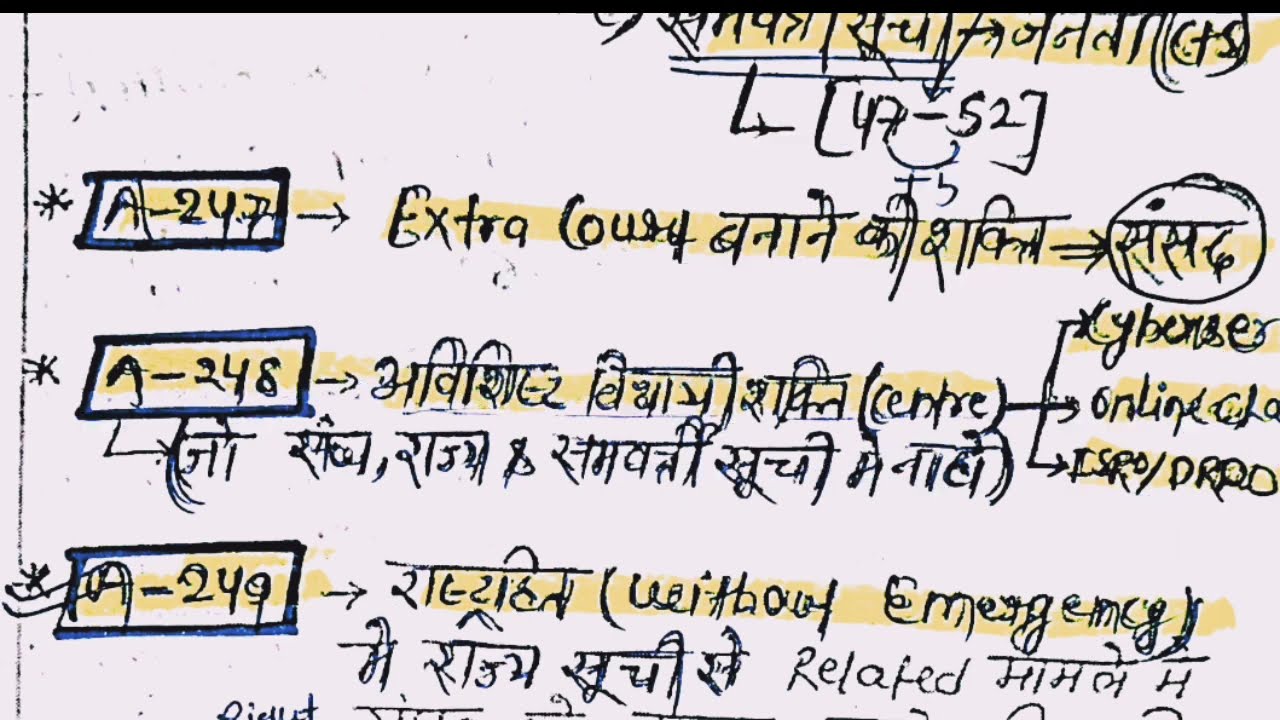 समवर्ती सूची → जनता (C+S)
↳ [47-52]
+5
* A-247 → Extra Court बनाने की शक्ति ⇒ संसद
* A-248 → अविशिष्ट विधायी शक्ति (centre)
→ Cyber
→ online cla
→ ISRO/DRDO
↳ (जो संघ, राज्य & समवर्ती सूची मे ना हो)
* A-249 → राष्ट्रहित (without Emergency)
मे राज्य सूची से Related मामले मे